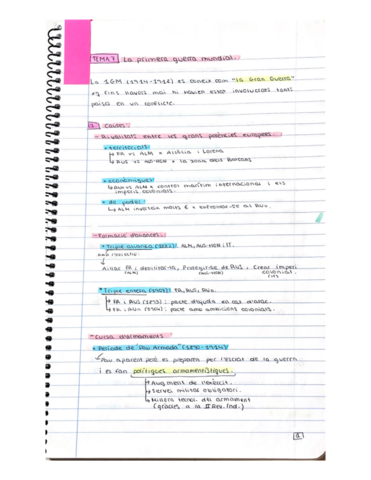 TEMA 7 La primera guerra mundial.
La 1GM (1914-1918) es coneix com "la Gran Guerra"
fins llavors mai hi havien estat involucrats tants
països en un conflicte.
Causes
- Rivalitats entre les grans potències europees.
• territorials
↳ FR vs ALM x Alsàcia i Lorena
↳ RUS vs AU-HON x la zona dels Balcans
• econòmiques
↳ vs ALM x control marítim internacional i els
imperis colonials.
• de poder
↳ ALM invertia més € x expandir-se al
- Formació d'aliances.
• Triple aliança (1882): ALM, AUS-HON i IT.
amb l'objectiu
Aïllar FR i debilitar-la, Protegir-se de RUS, Crear imperi
(ALM) (AUS-HON) colonial.
(IT)
• Triple entesa (1907): FR, RUS, RU.
↳ FR i RUS (1893): pacte d'ajuda en cas d'atac.
↳ FR i RU (1904): pacte amb ambicions colonials.
- Cursa d'armaments
• Període de "Pau Armada" (1871-1914)
↳ Pau aparent però es preparen per l'esclat de la guerra
i es fan polítiques armamentístiques.
↳ Augment de l'exèrcit.
↳ Servei militar obligatori.
↳ Millora tecnol. del armament
(gràcies a la II Rev. Ind.)
1